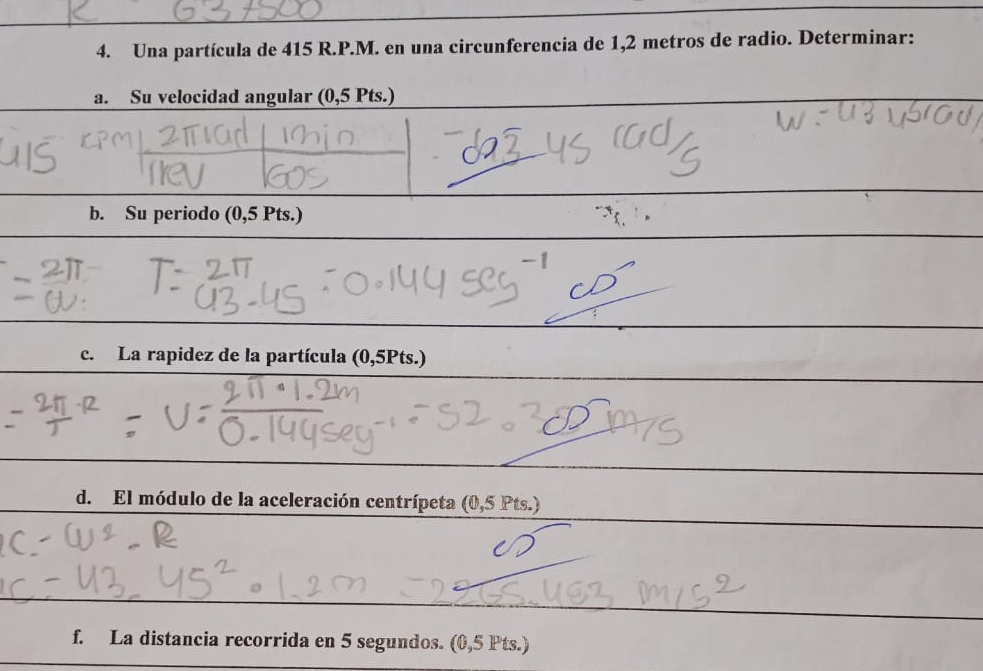 R 637500
4. Una partícula de 415 R.P.M. en una circunferencia de 1,2 metros de radio. Determinar:
a. Su velocidad angular (0,5 Pts.)
415 rpm | 2π rad | 1min = 43 45 rad/s W = 43 45 rad/
1rev | 60s
b. Su periodo (0,5 Pts.)
= 2π/W T = 2π/43.45 = 0.144 seg⁻¹
c. La rapidez de la partícula (0,5Pts.)
= 2π/T · R = V = 2π · 1.2m / 0.144seg⁻¹ = 52. m/s
d. El módulo de la aceleración centrípeta (0,5 Pts.)
c = W² . R
c = 43.45² . 1.2m = 2265.483 m/s²
f. La distancia recorrida en 5 segundos. (0,5 Pts.)